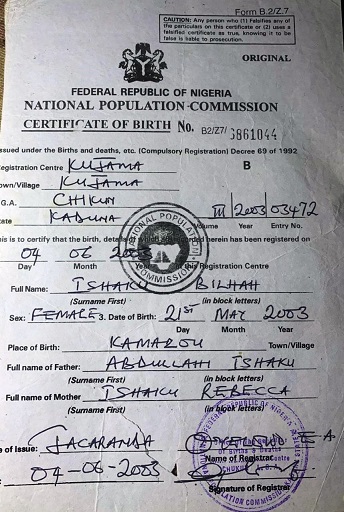 Form B.2/Z.7
CAUTION: Any person who (1) Falsifies any of
the particulars on this certificate or (2) uses a
falsified certificate as true, knowing it to be
false is liable to prosecution.
ORIGINAL
FEDERAL REPUBLIC OF NIGERIA
NATIONAL POPULATION COMMISSION
CERTIFICATE OF BIRTH No. B2/Z7/ 3861044
ssued under the Births and deaths, etc. (Compulsory Registration) Decree 69 of 1992
egistration Centre KUJAMA B
own/Village KUJAMA
G.A. CHIKUN
tate KADUNA III 2003 03472
Vol. Year Entry No.
his is to certify that the birth, details which recorded herein has been registered on
04 06 2003
Day Month this Registration Centre
Full Name: ISHAKU BILHAH
(Surname First) (in block letters)
Sex: FEMALE 3. Date of Birth: 21ST MAY 2003
Day Month Year
Place of Birth: KAMAZOU Town/Village
Full name of Father: ABDULLAHI ISHAKU
(Surname First) (in block letters)
Full name of Mother ISHAKU REBECCA
(Surname First) (in block letters)
e of Issue: JACARANDA E A
Name of Registrar
04-06-2003
Signature of Registrar
NATIONAL POPULATION COMMISSION